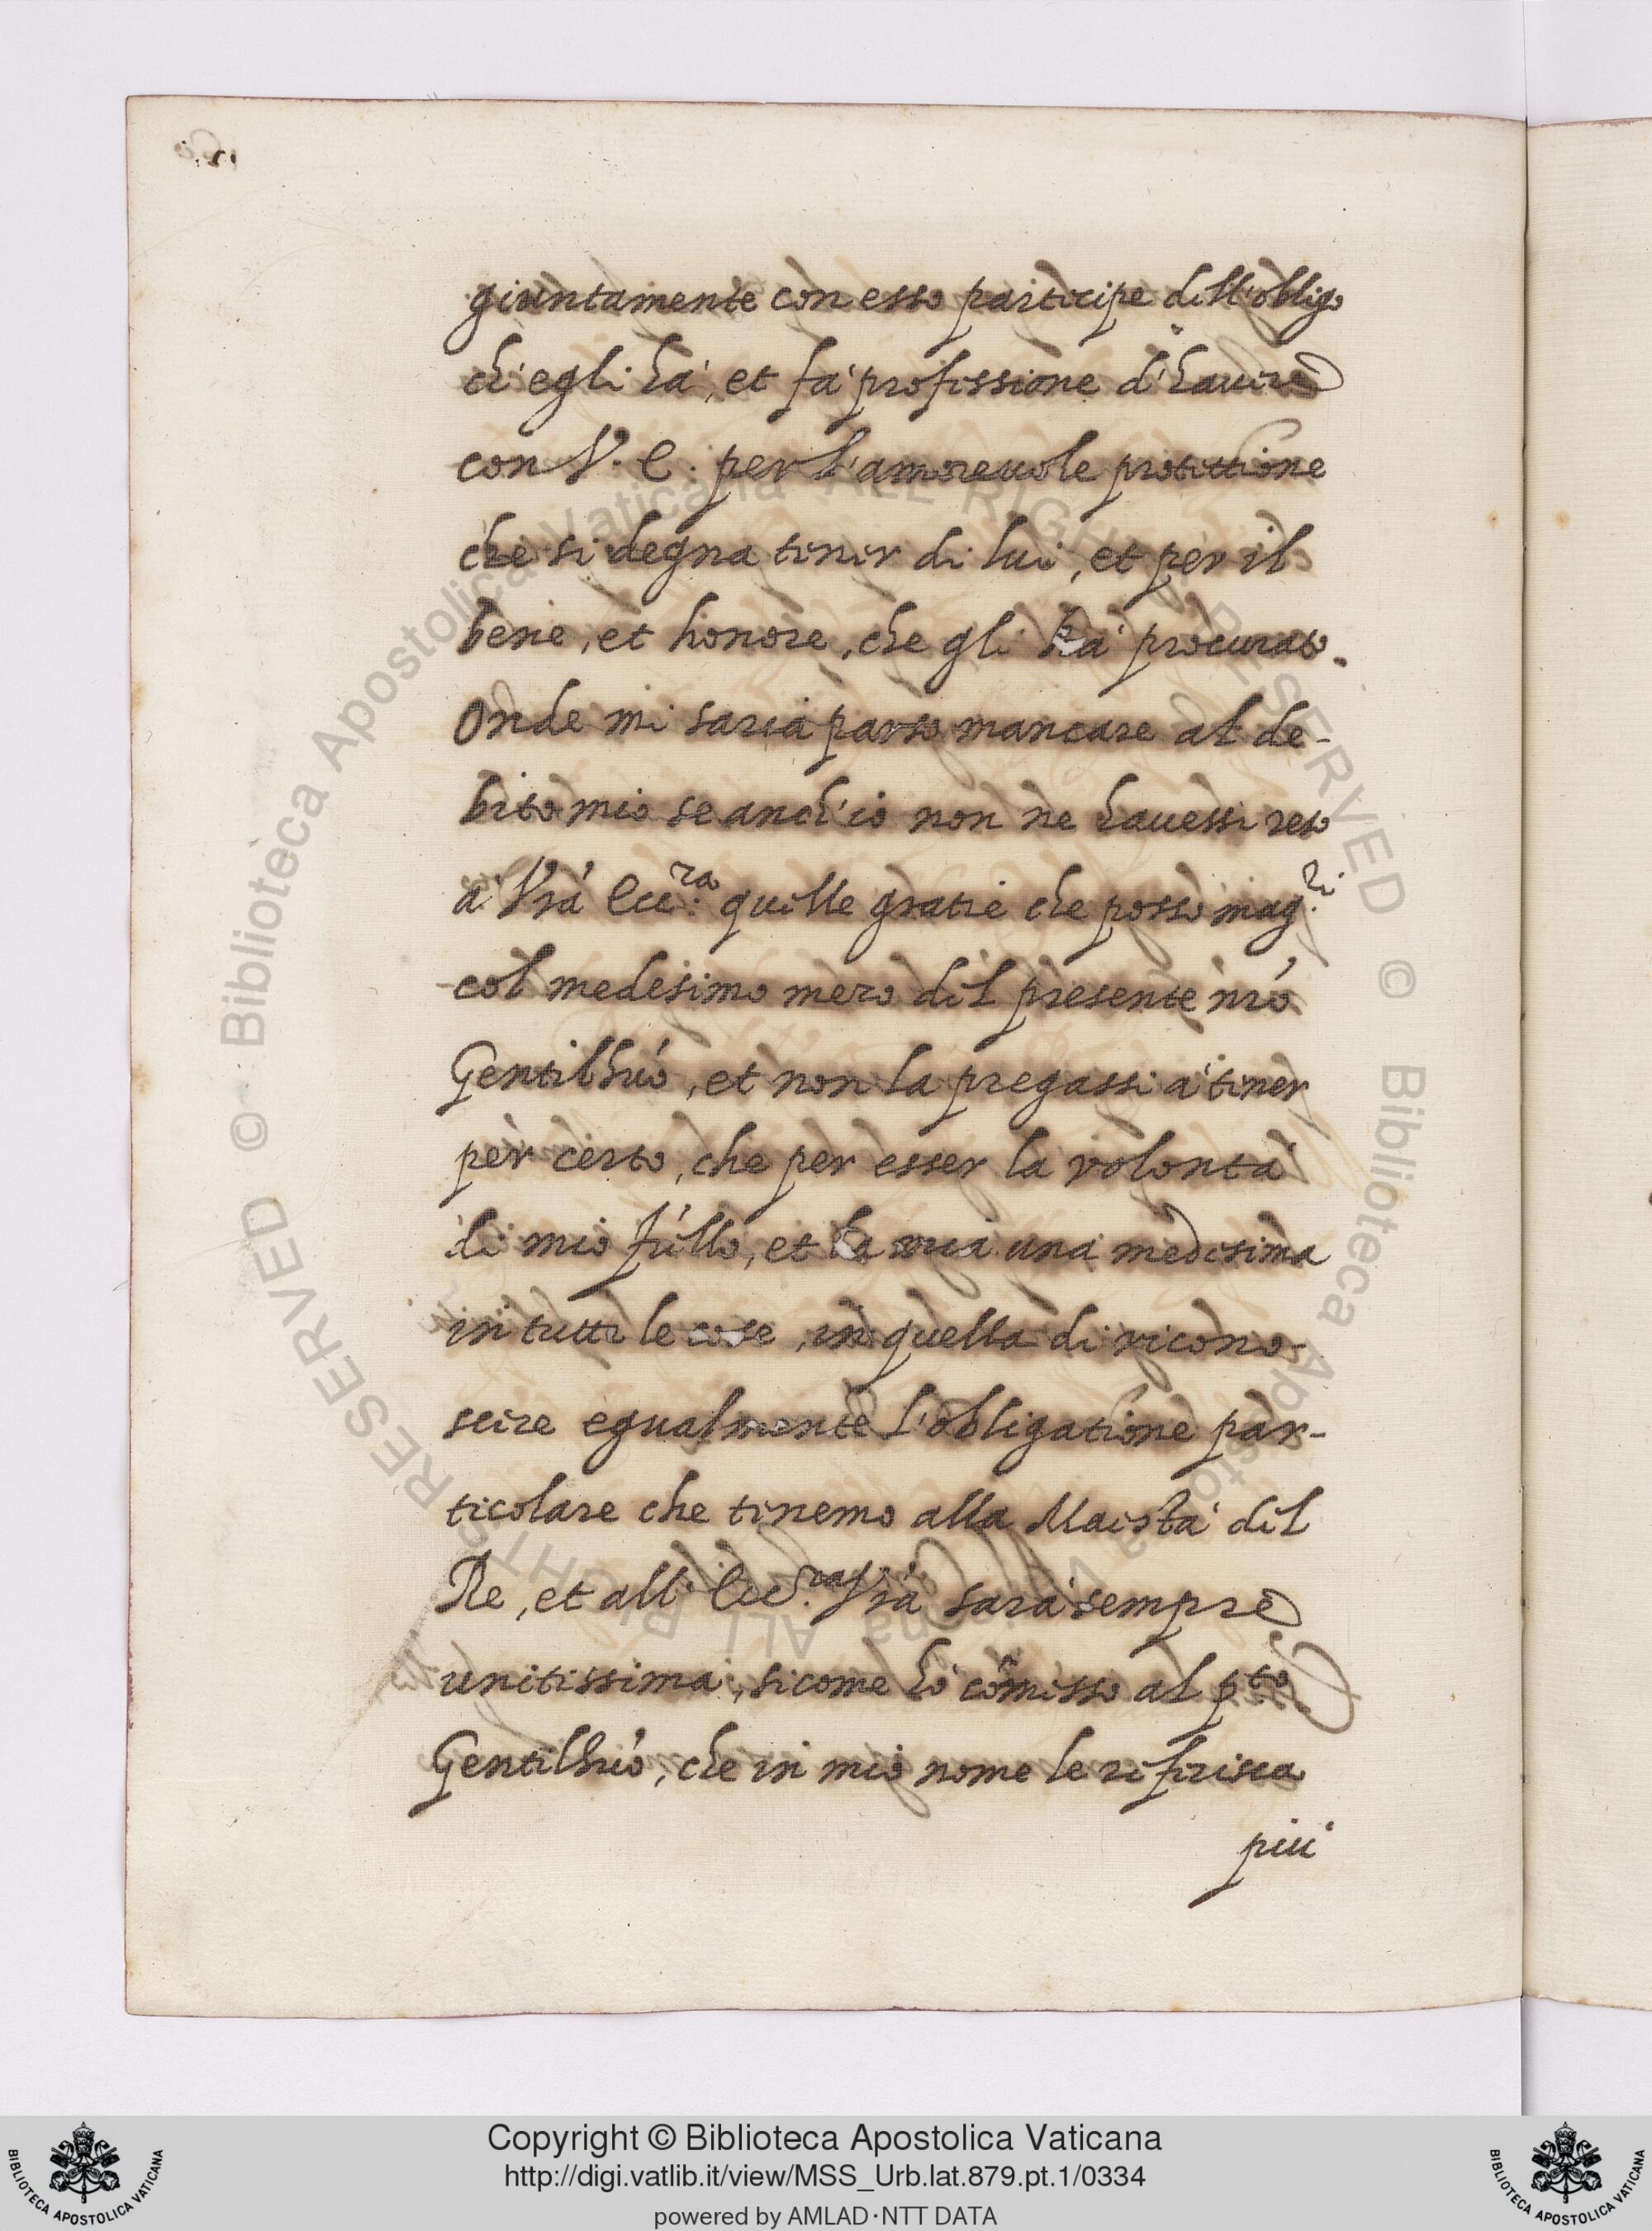 giuntamente con esso participe dell'obligo
ch'egli hà, et fà professione d'havere
con V. E. per l'amorevole protettione
che si degna tener di lui, et per il
bene, et honore, che gli hà procurato.
Onde mi saria parso mancare al de-
bito mio se anch'io non ne havessi reso
à Vrã Ecc.ra quelle gratie che posso mag.ri
col medesimo mezo del presente nrõ
Gentilhuõ, et non la pregassi à tener
per certo, che per esser la volontà
di mio frẽllo, et la mia una medesima
in tutte le cose, in quella di ricono-
scere egualmente l'obligatione par-
ticolare che tenemo alla Maestà del
Re, et all' Ecc.za Vrã sarà sempre
unitissima, sicome hò cõmesso al p.to
Gentilhuõ, che in mio nome le referisca
più
Copyright © Biblioteca Apostolica Vaticana
http://digi.vatlib.it/view/MSS_Urb.lat.879.pt.1/0334
powered by AMLAD·NTT DATA
BIBLIOTECA APOSTOLICA VATICANA
BIBLIOTECA APOSTOLICA VATICANA
© Biblioteca Apostolica Vaticana ALL RIGHTS RESERVED
© Biblioteca Apostolica Vaticana ALL RIGHTS RESERVED